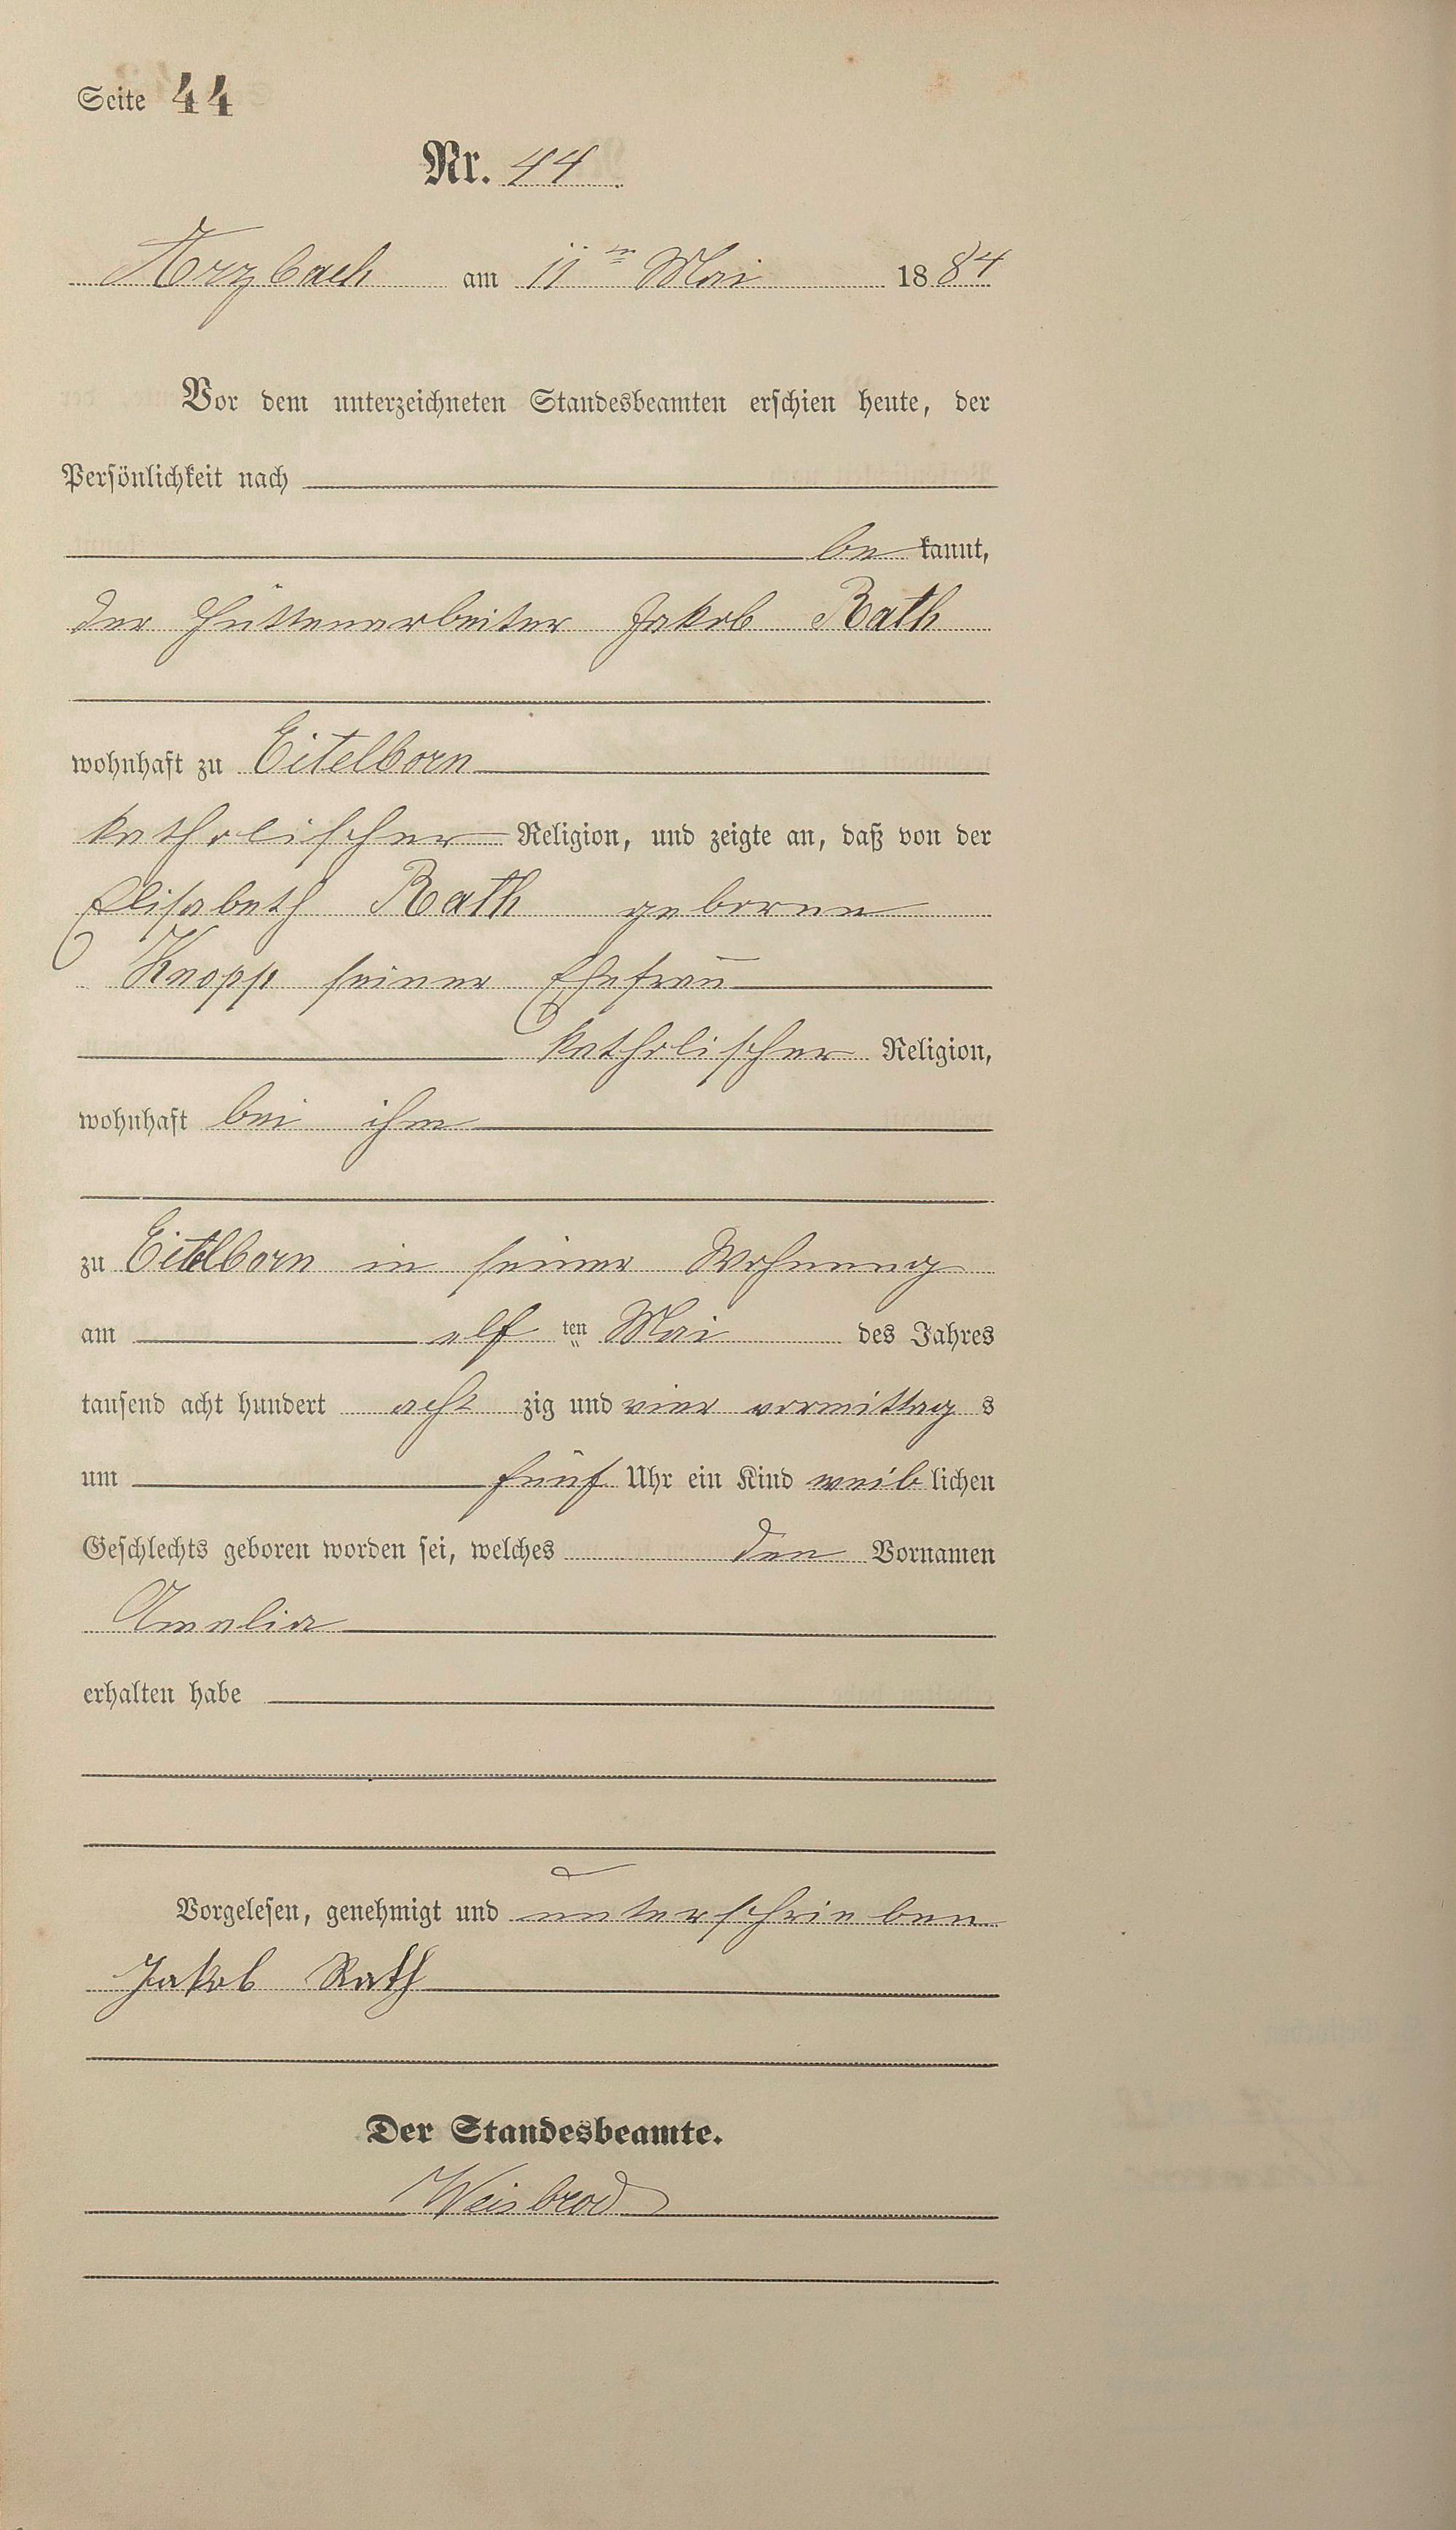 Seite 44
Nr. 44
Arzbach am 11ten Mai 1884
Vor dem unterzeichneten Standesbeamten erschien heute, der
Persönlichkeit nach
bekannt,
der Hüttenarbeiter Jakob Rath
wohnhaft zu Eitelborn
katholischer Religion, und zeigte an, daß von der
Elisabeth Rath geborne
Knopp seiner Ehefrau
katholischer Religion,
wohnhaft bei ihm
zu Eitelborn in seiner Wohnung
am elf ten Mai des Jahres
tausend acht hundert acht zig und vier vormittag s
um fünf Uhr ein Kind weiblichen
Geschlechts geboren worden sei, welches den Vornamen
Amalia
erhalten habe
Vorgelesen, genehmigt und unterschrieben
Jakob Rath
Der Standesbeamte.
Weisbrod